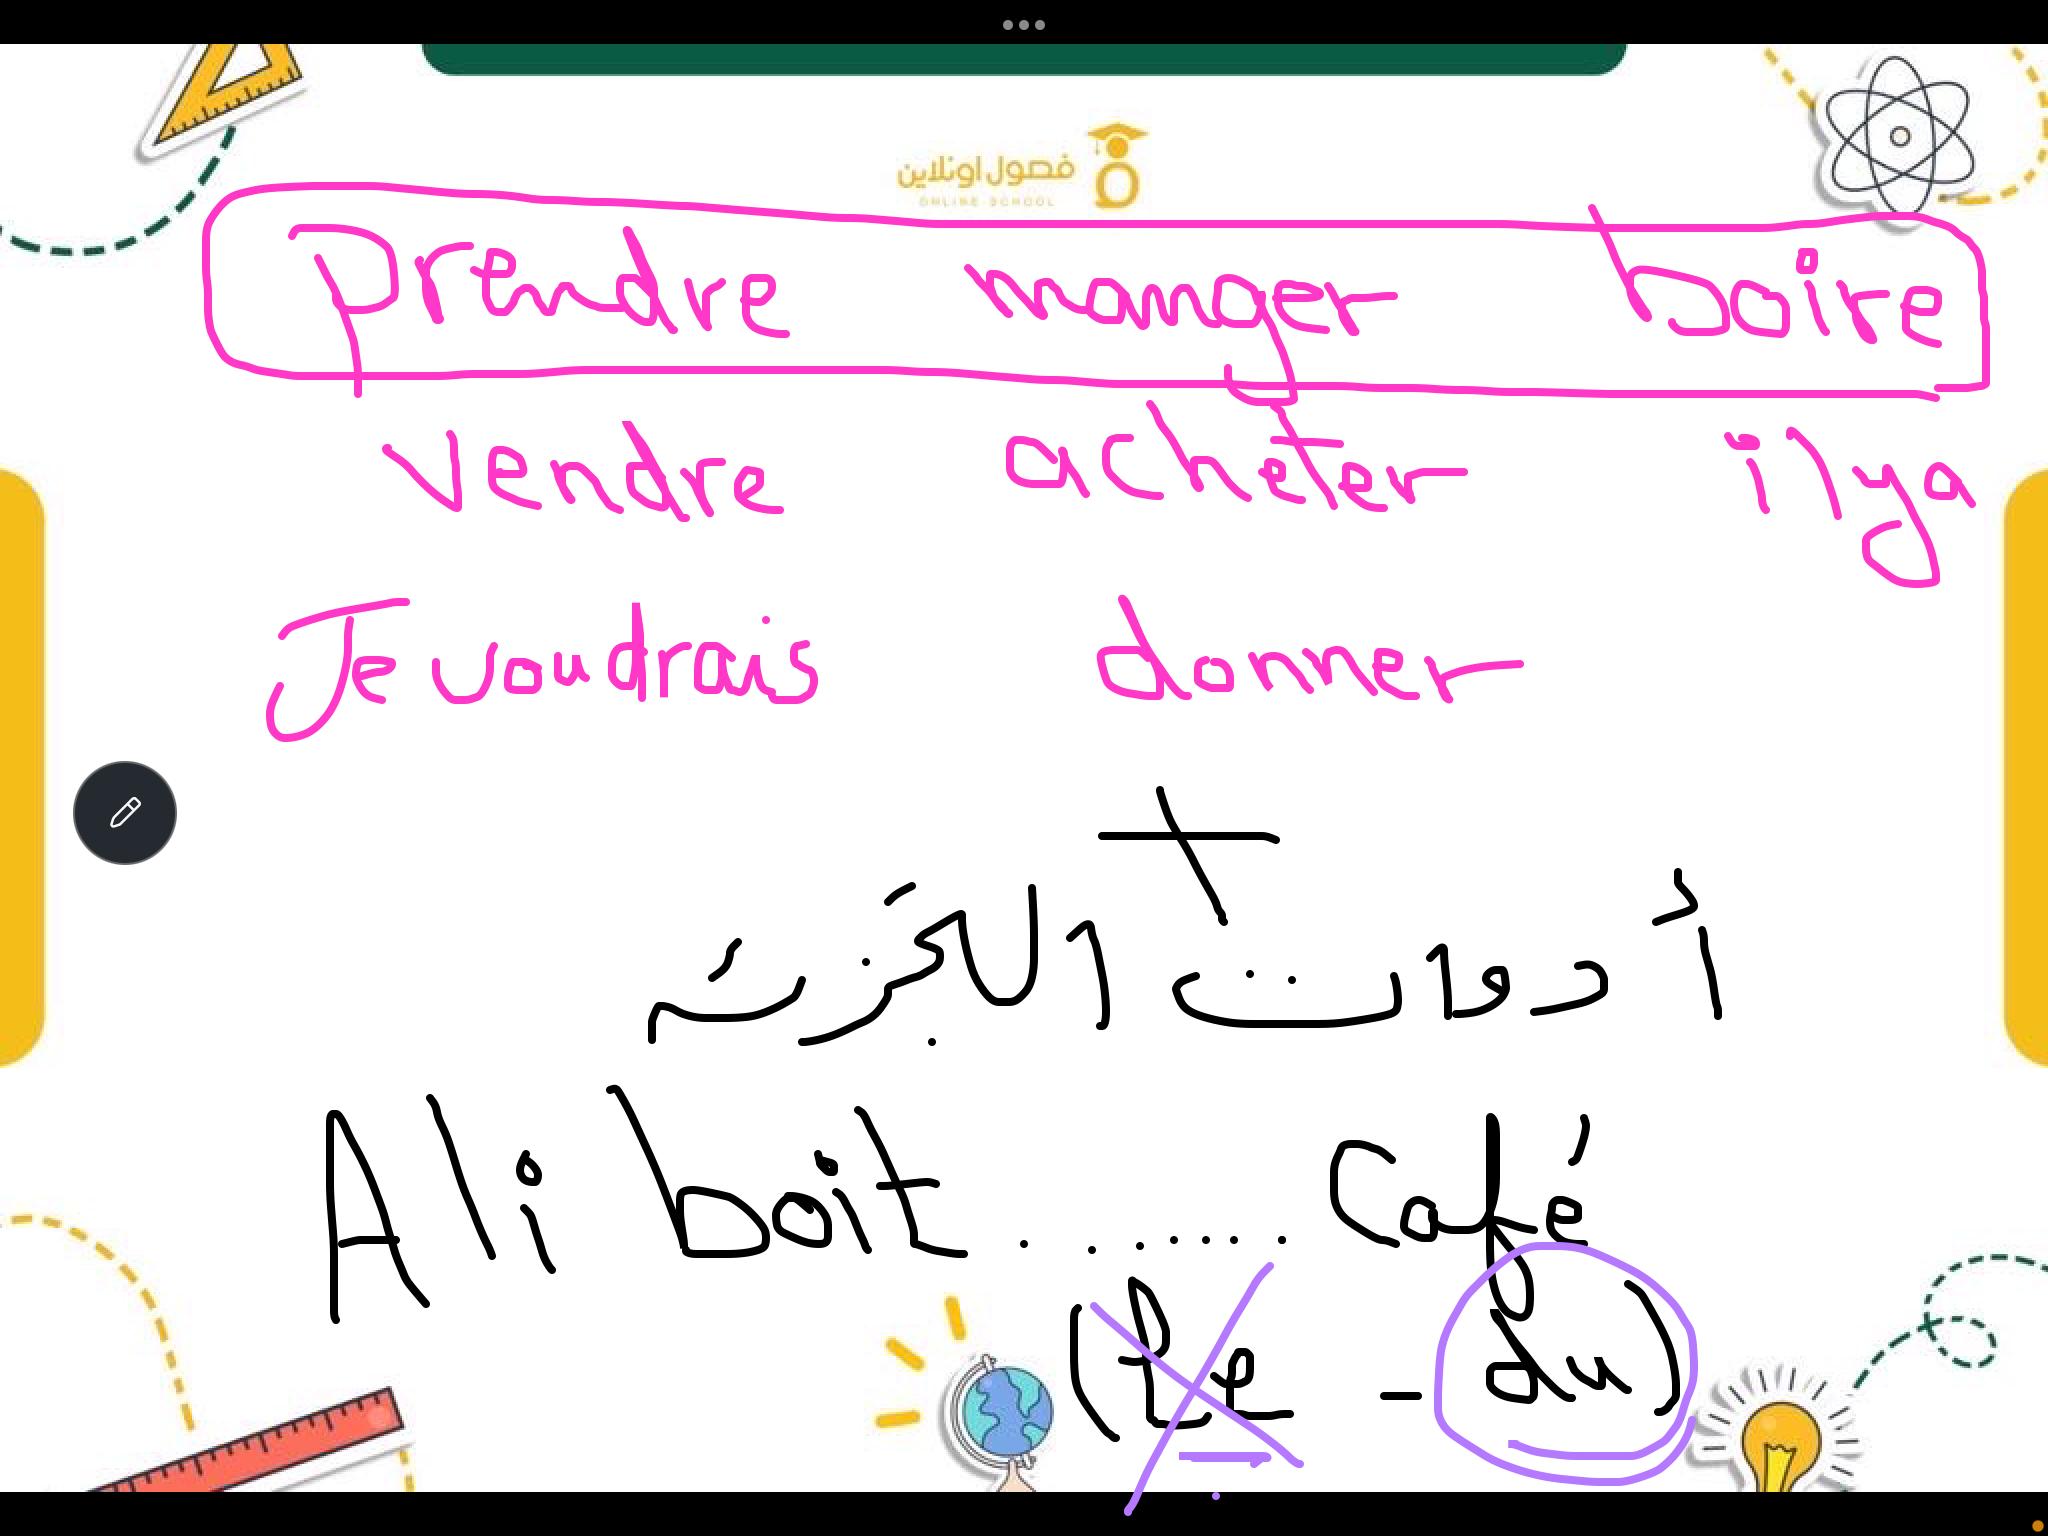 فصول اونلاين
ONLINE SCHOOL
prendre manger boire
vendre acheter il y a
Je voudrais donner
+
أدوات التجزئة
Ali boit ....... Café
(Le - du)